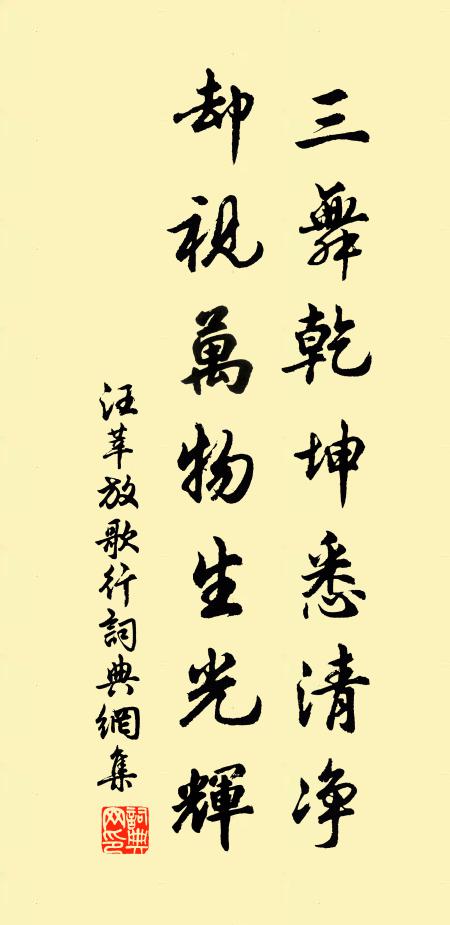 三舞乾坤悉清净
却視萬物生光輝
汪莘放歌行詞典網集
詞典网印